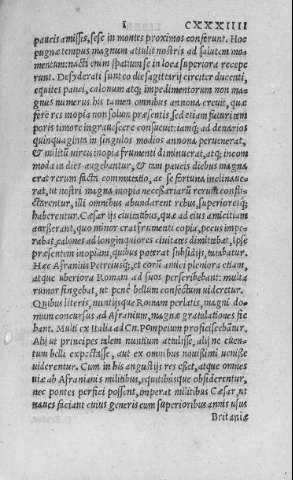 I CXXXIIII
paucis amissis, sese in montes proximos conferunt. Hoc
pugnæ tempus magnum attulit nostris ad salutem mo
mentum: nacti enim spatium se in loca superiora recepe
runt. Desyderati sunt eo die sagitarij circiter ducenti,
equites pauci, calonum atq; impedimentorum non ma
gnus numerus his tamen omnibus annona creuit, quæ
ferè res inopia non solum præsentis, sed etiam futuri tem
poris timore ingrauescere consueuit: iamq; ad denarios
quinquaginta in singulos modios annona peruenerat,
& militū uires inopia frumenti diminuerat, atq; incom
moda in dies augebantur, & tam paucis diebus magna
erat rerum facta commutatio, ac se fortuna inclinaue-
rat, ut nostri magna inopia necessariarū rerum conflis
ctarentur, illi omnibus abundarent rebus, superioresq;
haberentur. Cæsar ijs ciuitatibus, quæ ad eius amicitiam
accesserant, quo minor erat frumenti copia, pecus impe-
rabat, calones ad longinquiores ciuitates dimittebat, ipse
præsentem inopiam, quibus poterat subsidijs, tutabatur.
Hæc Afranius Petreiusq;, et eorū amici pleniora etiam,
atque uberiora Romam ad suos perscribebant: multa
rumor fingebat, ut penè bellum confectum uideretur.
Quibus literis, nuntijsque Romam perlatis, magni do-
mum concursus ad Afranium, magnæ gratulationes fie
bant. Multi ex Italia ad Cn. Pompeium proficiscebātur.
Alij ut principes talem nuntium attulisse, alij ne euen-
tum belli expectasse, aut ex omnibus nouissimi uenisse
uiderentur. Cum in his angustijs res esset, atque omnes
uiæ ab Afranianis militibus, equitibusque obsiderentur,
nec pontes perfici possent, imperat militibus Cæsar, ut
naues faciant cuius generis eum superioribus annis usus
Britaniæ